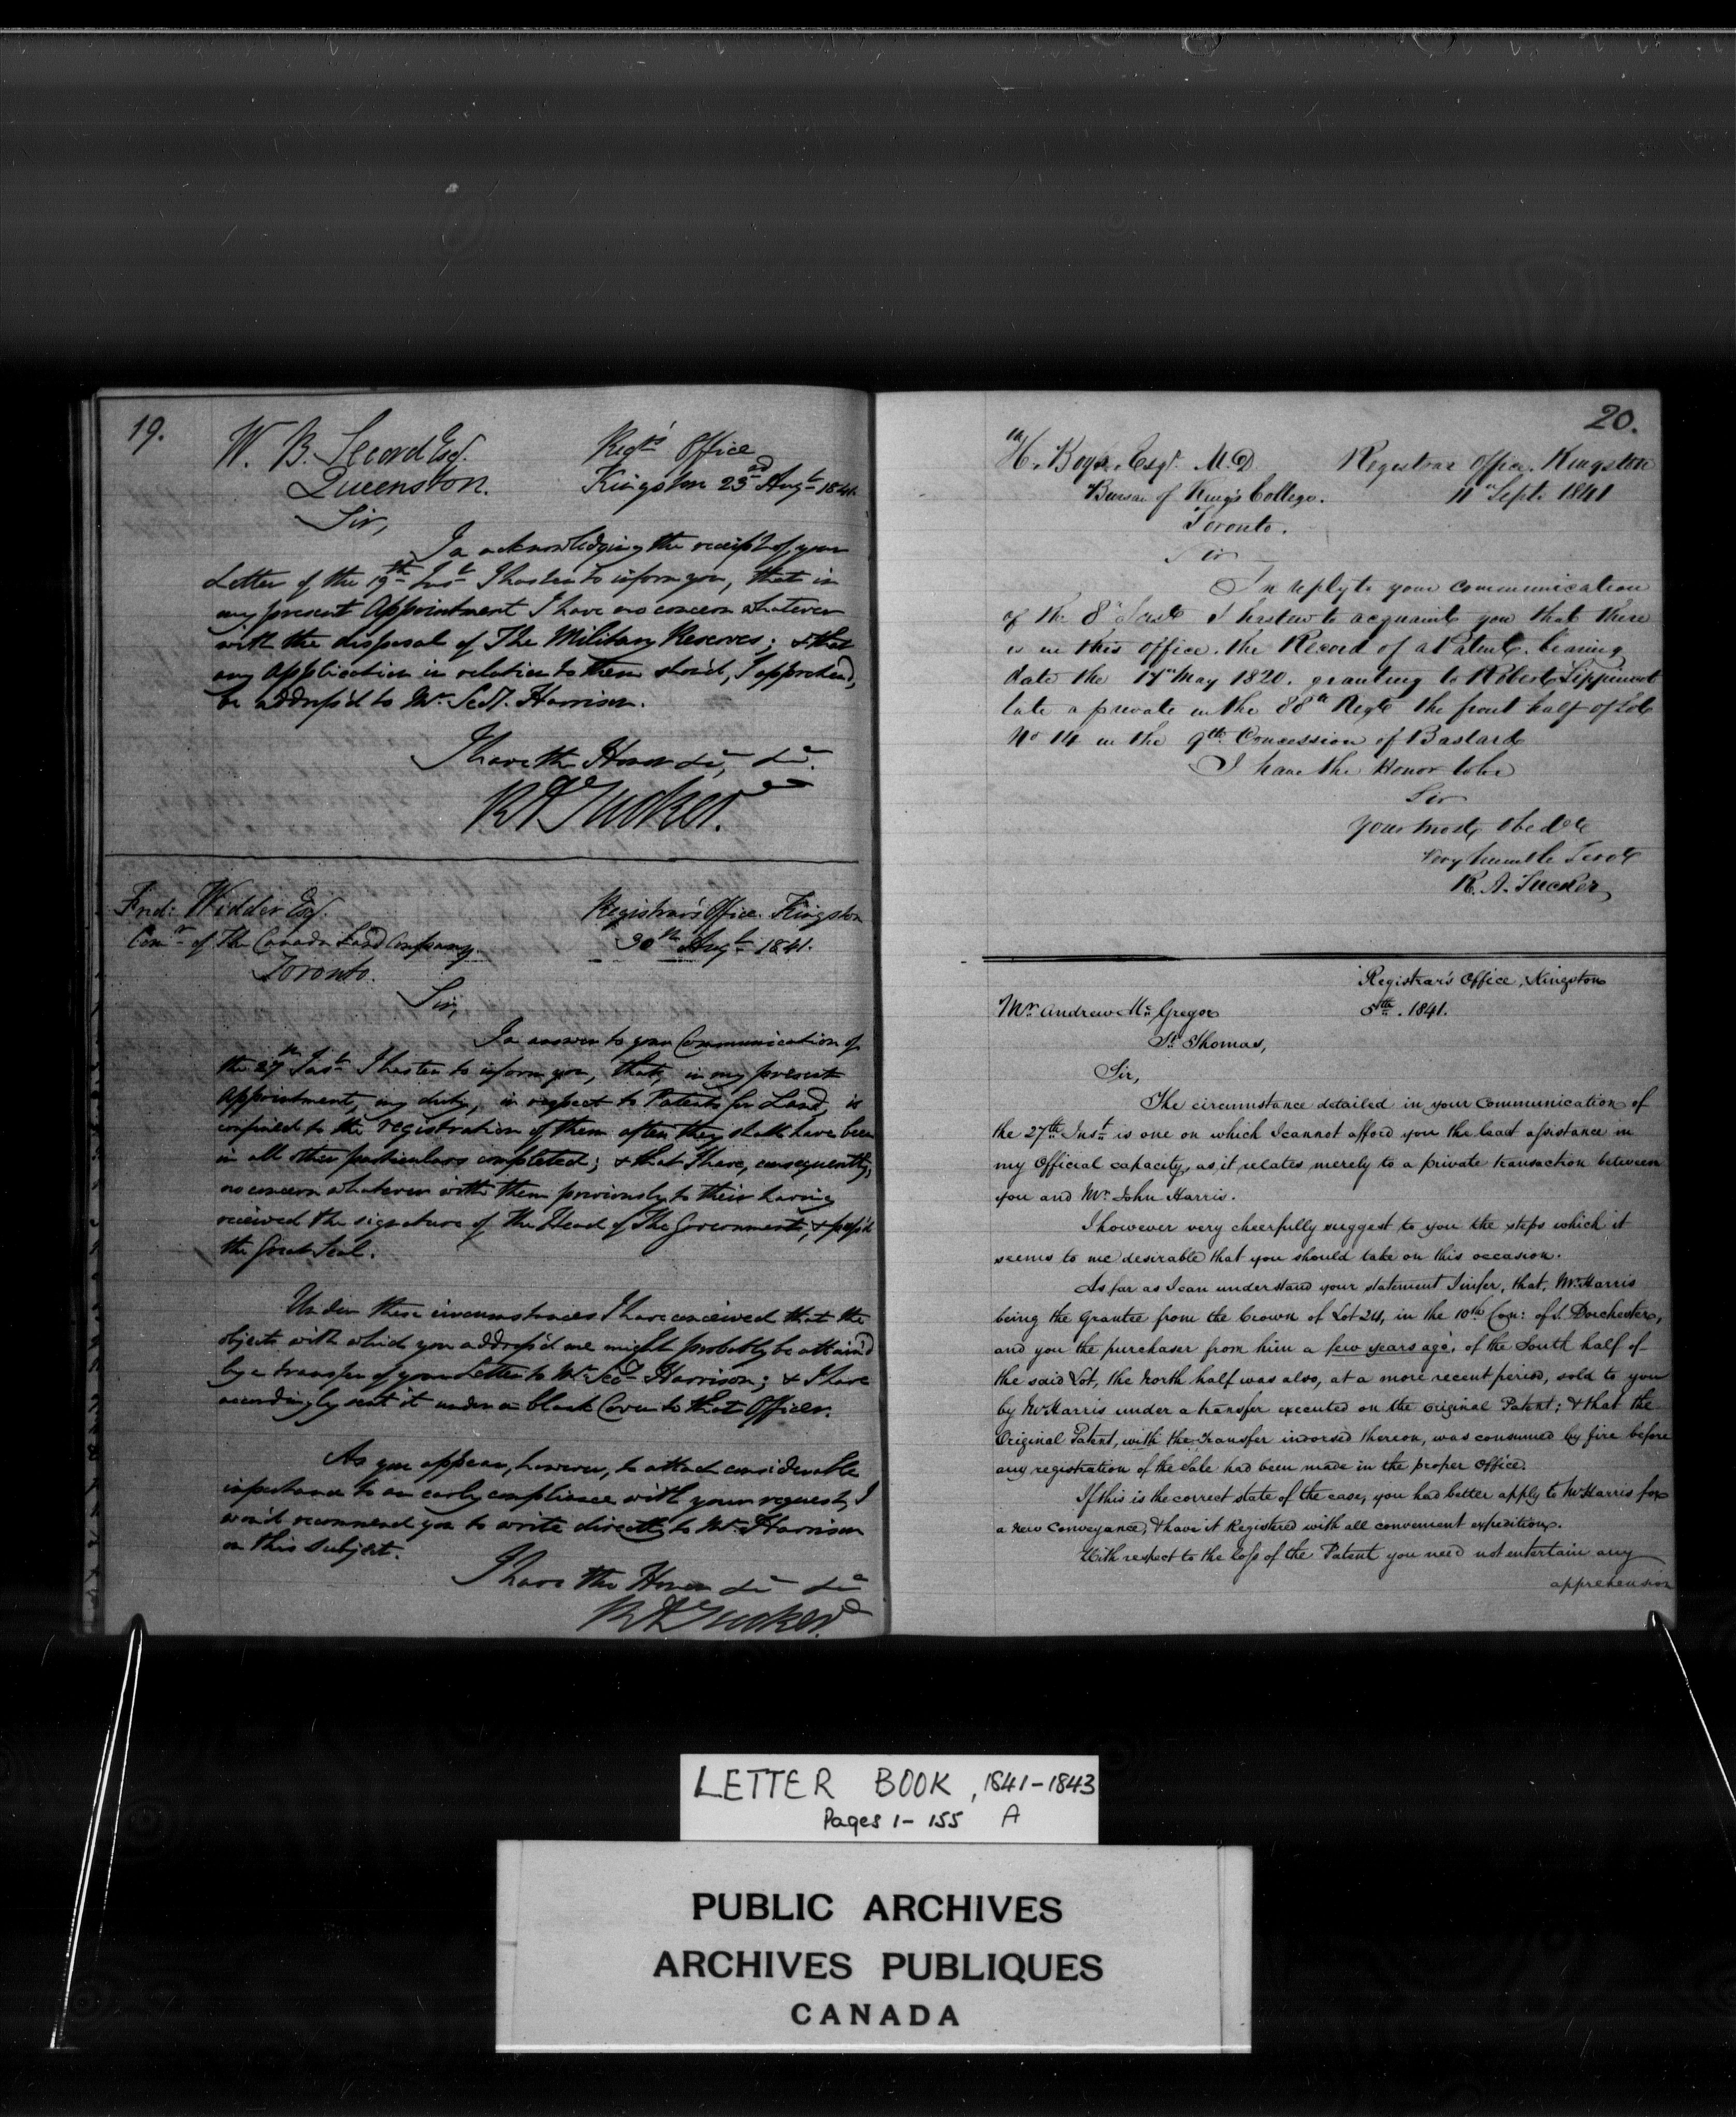 19.
W. B. Secord Esq.
Queenston.
Regrs Office
Kingston 23rd Augt 1841.
Sir,
In acknowledging the receipt of your
Letter of the 19th Inst I hasten to inform you, that in
my present Appointment I have no concern whatever
with the disposal of The Military Reserves; & that
any Application in relation to them shou'd, I apprehend,
be address'd to Mr. Secy. Harrison.
I have the Honor &c, &c.
R A Tucker.
Fred: Widder Esq.
Comr of The Canada Land Company.
Toronto.
Registrar's Office. Kingston
30th Augt 1841.
Sir,
In answer to your Communication of
the 27th Inst I hasten to inform you, that, in my present
Appointment, my duty, in respect to Patents for Land, is
confined to the registration of them after they shall have been
in all other particulars completed; & that I have, consequently,
no concern whatever with them previously to their having
received the signature of the Head of The Government, & pass'd
the Great Seal.
Under these circumstances I have conceived that the
objects with which you address'd me might probably be attain'd
by a transfer of your Letter to Mr Secy Harrison; & I have
accordingly sent it under a blank Cover to that Officer.
As you appear, however, to attach considerable
importance to an early compliance with your request, I
wou'd recommend you to write directly to Mr Harrison
on this Subject.
I have the Honor &c &c
R A Tucker.
20.
H. Boys, Esqr. M.D.
Bursar of King's College.
Toronto.
Registrar Office. Kingston
11th Sept. 1841
Sir
In reply to your communication
of the 8th Inst I hasten to acquaint you that there
is in this Office. the Record of a Patent. bearing
date the 17th May 1820. granting to Robert Lippincot
late a private in the 88th Regt the front half of Lot
No 14 in the 9th Concession of Bastard
I have the Honor to be
Sir
Your most obedt
Very humble Servt
R. A. Tucker
Registrar's Office, Kingston
5th. 1841.
Mr. Andrew Mc Gregor
St Thomas,
Sir,
The circumstance detailed in your Communication of
the 27th Inst is one on which I cannot afford you the least assistance in
my Official capacity, as it relates merely to a private transaction between
you and Mr. John Harris.
I however very cheerfully suggest to you the steps which it
seems to me desirable that you should take on this occasion.
As far as I can understand your statement I infer, that, Mr Harris
being the Grantee from the Crown of Lot 24, in the 10th Con: of S. Dorchester,
and you the purchaser from him a few years ago, of the South half of
the said Lot, the North half was also, at a more recent period, sold to you
by Mr Harris under a transfer executed on the original Patent; & that the
Original Patent, with the transfer indorsed thereon, was consumed by fire before
any registration of the Sale had been made in the proper Office.
If this is the correct state of the case, you had better apply to Mr Harris for
a new Conveyance, & have it Registered with all convenient expedition.
With respect to the loss of the Patent you need not entertain any
apprehension
LETTER BOOK, 1841-1843
Pages 1- 155 A
PUBLIC ARCHIVES
ARCHIVES PUBLIQUES
CANADA